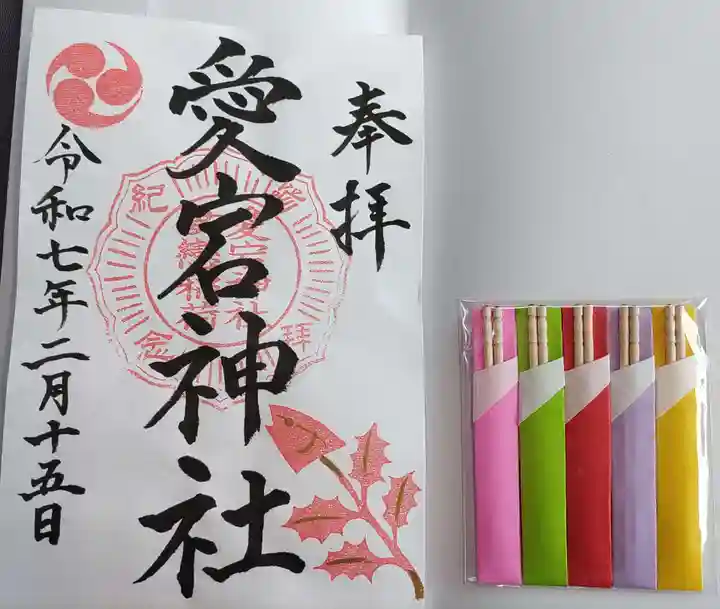 奉拝
愛宕神社
令和七年二月十五日
参拝
紀念